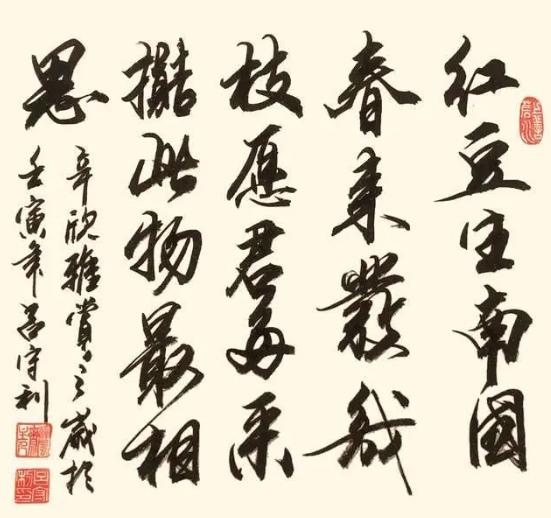 红豆生南國
春来發幾
枝愿君多采
擷此物最相
思
辛欣雅賞之歲於
壬寅年吕守利
上善若水